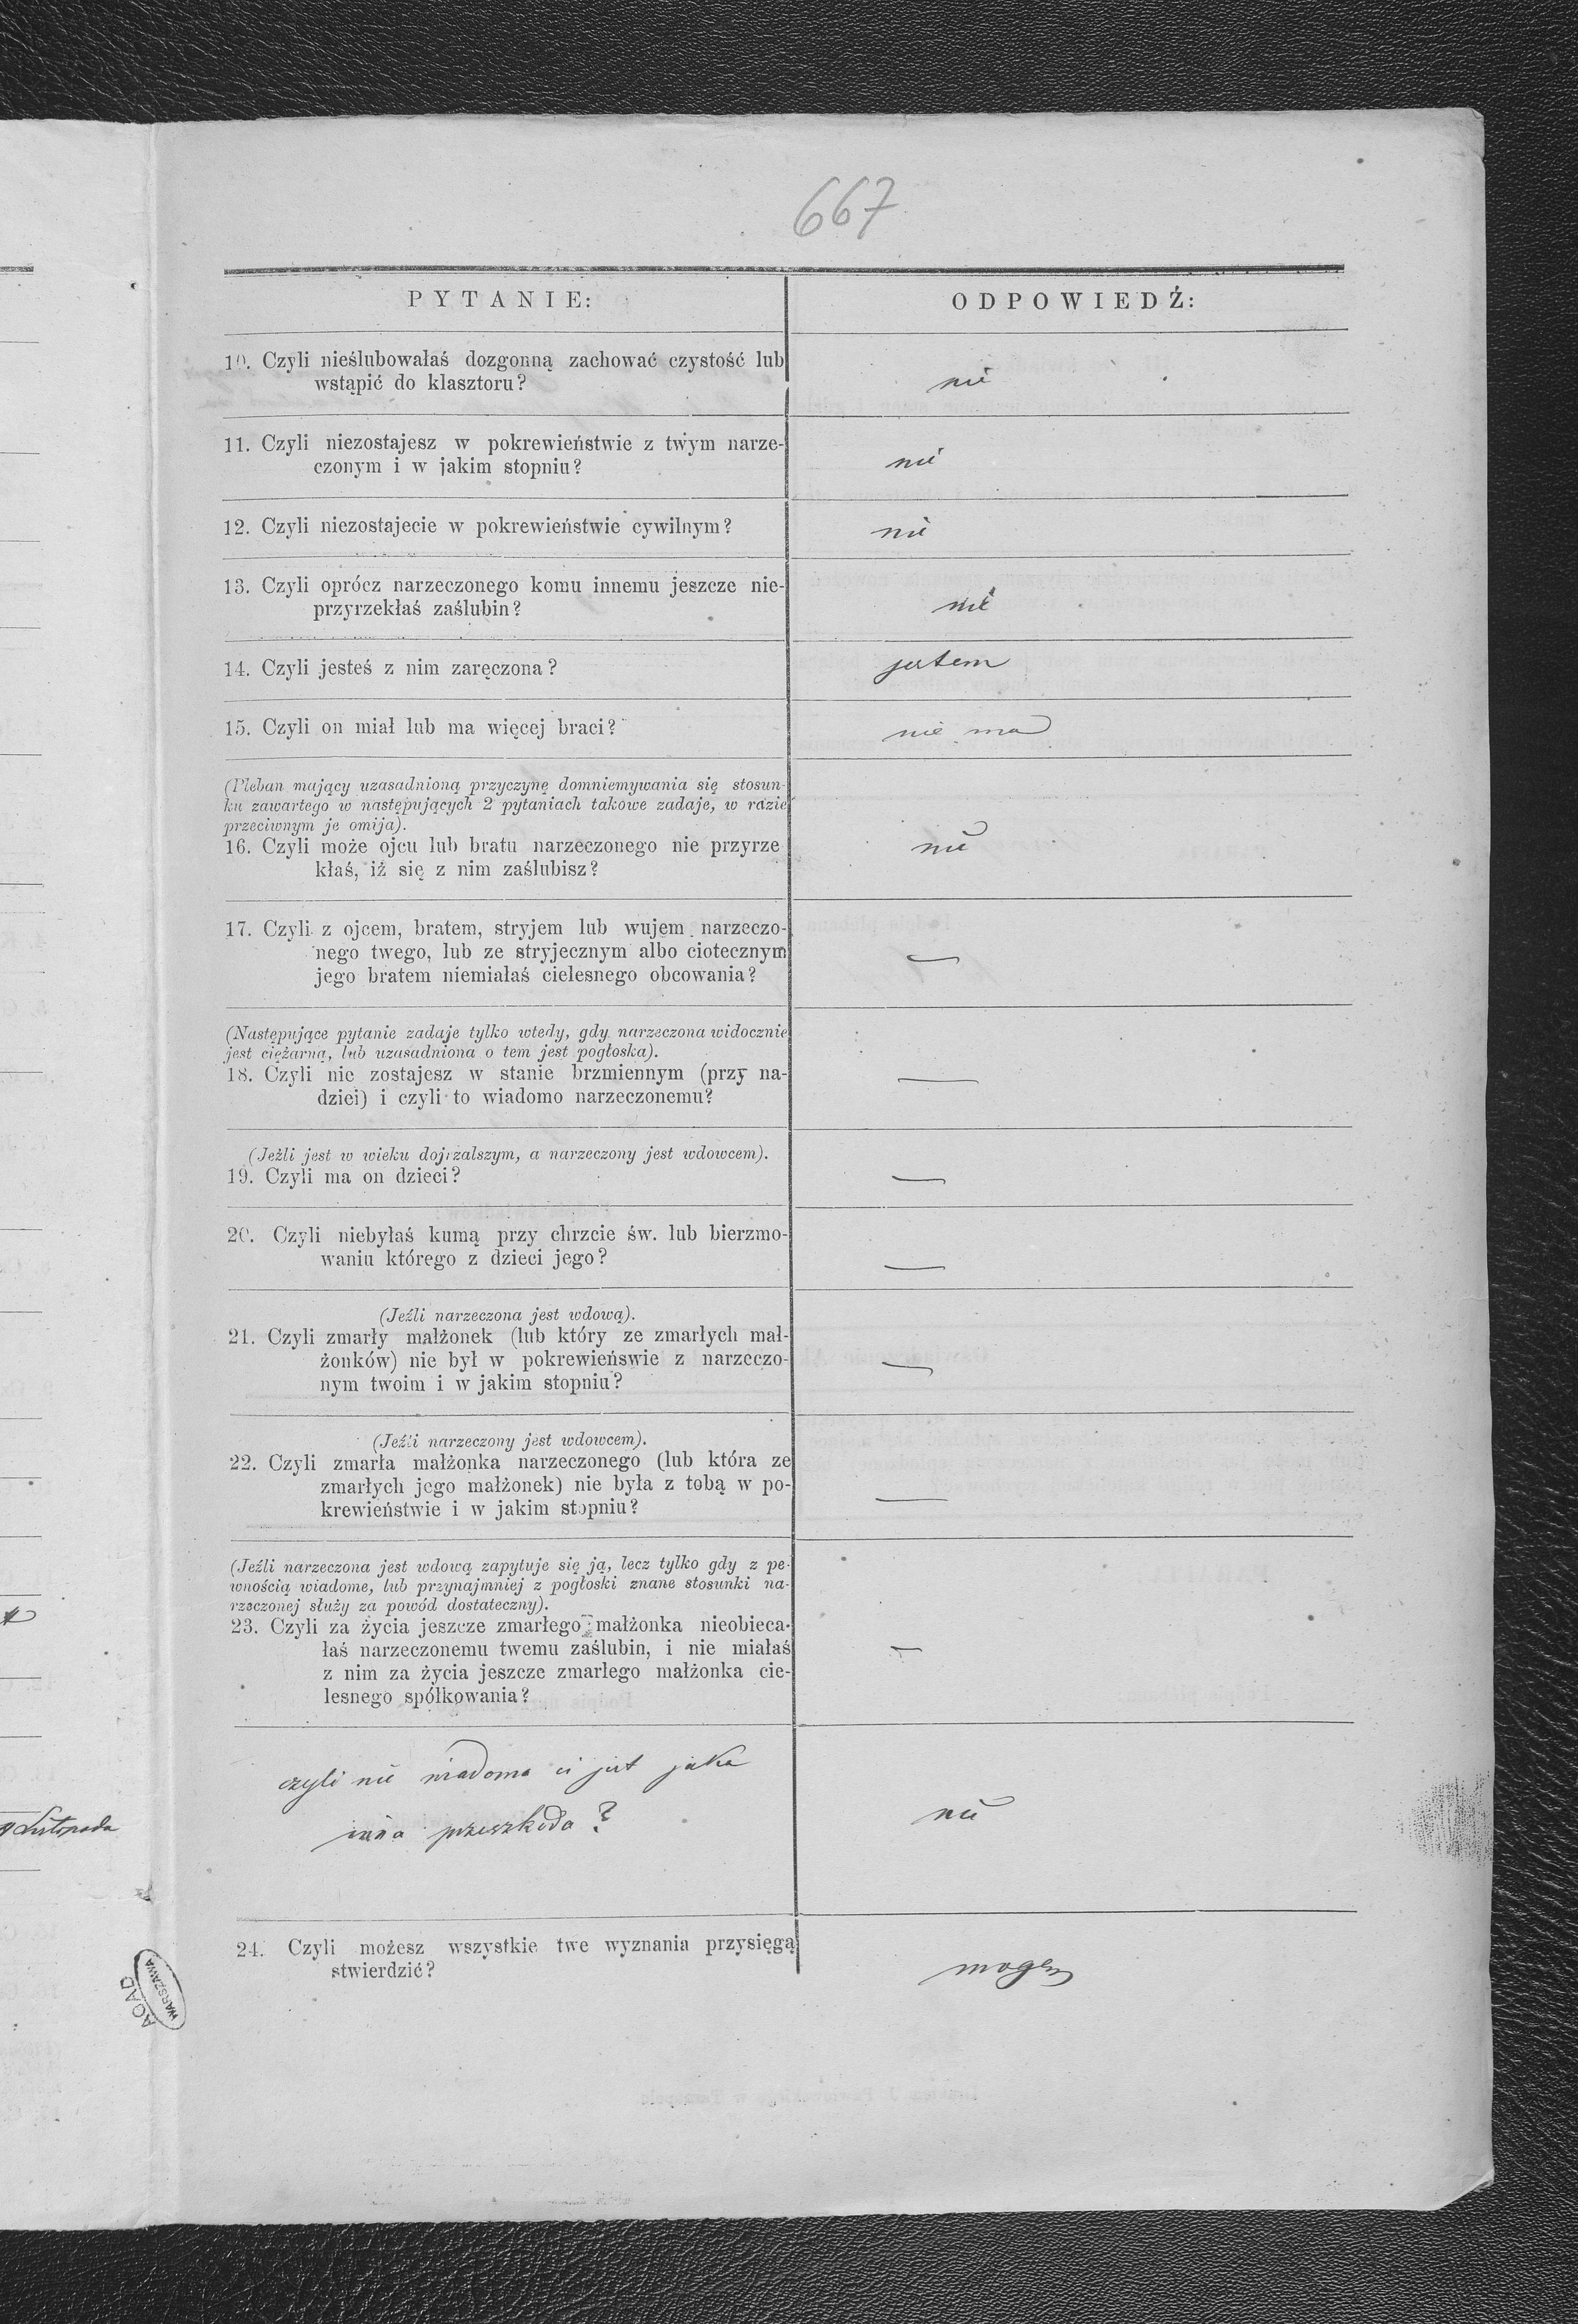 667
PYTANIE:
ODPOWIEDŹ:
10. Czyli nieślubowałaś dozgonną zachować czystość lub
wstąpić do klasztoru?
nie
11. Czyli niezostajesz w pokrewieństwie z twym narze-
czonym i w jakim stopniu?
nie
12. Czyli niezostajecie w pokrewieństwie cywilnym?
nie
13. Czyli oprócz narzeczonego komu innemu jeszcze nie-
przyrzekłaś zaślubin?
nie
14. Czyli jesteś z nim zaręczona?
jestem
15. Czyli on miał lub ma więcej braci?
nie ma
(Pleban mający uzasadnioną przyczynę domniemywania się stosun-
ku zawartego w następujących 2 pytaniach takowe zadaje, w razie
przeciwnym je omija).
16. Czyli może ojcu lub bratu narzeczonego nie przyrze
kłaś, iż się z nim zaślubisz?
nie
17. Czyli z ojcem, bratem, stryjem lub wujem narzeczo-
nego twego, lub ze stryjecznym albo ciotecznym
jego bratem niemiałaś cielesnego obcowania?
—
(Następujące pytanie zadaje tylko wtedy, gdy narzeczona widocznie
jest ciężarną, lub uzasadniona o tem jest pogłoska).
18. Czyli nie zostajesz w stanie brzmiennym (przy na-
dziei) i czyli to wiadomo narzeczonemu?
—
(Jeźli jest w wieku dojrzalszym, a narzeczony jest wdowcem).
19. Czyli ma on dzieci?
—
20. Czyli niebyłaś kumą przy chrzcie św. lub bierzmo-
waniu którego z dzieci jego?
—
(Jeźli narzeczona jest wdową).
21. Czyli zmarły małżonek (lub który ze zmarłych mał-
żonków) nie był w pokrewieńswie z narzeczo-
nym twoim i w jakim stopniu?
—
(Jeźli narzeczony jest wdowcem).
22. Czyli zmarła małżonka narzeczonego (lub która ze
zmarłych jego małżonek) nie była z tobą w po-
krewieństwie i w jakim stopniu?
—
(Jeźli narzeczona jest wdową zapytuje się ją, lecz tylko gdy z pe-
wnością wiadome, lub przynajmniej z pogłoski znane stosunki na-
rzeczonej służy za powód dostateczny).
23. Czyli za życia jeszcze zmarłego małżonka nieobieca-
łaś narzeczonemu twemu zaślubin, i nie miałaś
z nim za życia jeszcze zmarłego małżonka cie-
lesnego spółkowania?
—
czyli nie wiadoma ci jest jaka
inna przeszkoda?
nie
24. Czyli możesz wszystkie twe wyznania przysięgą
stwierdzić?
mogę
Listopada
AGAD
WARSZAWA